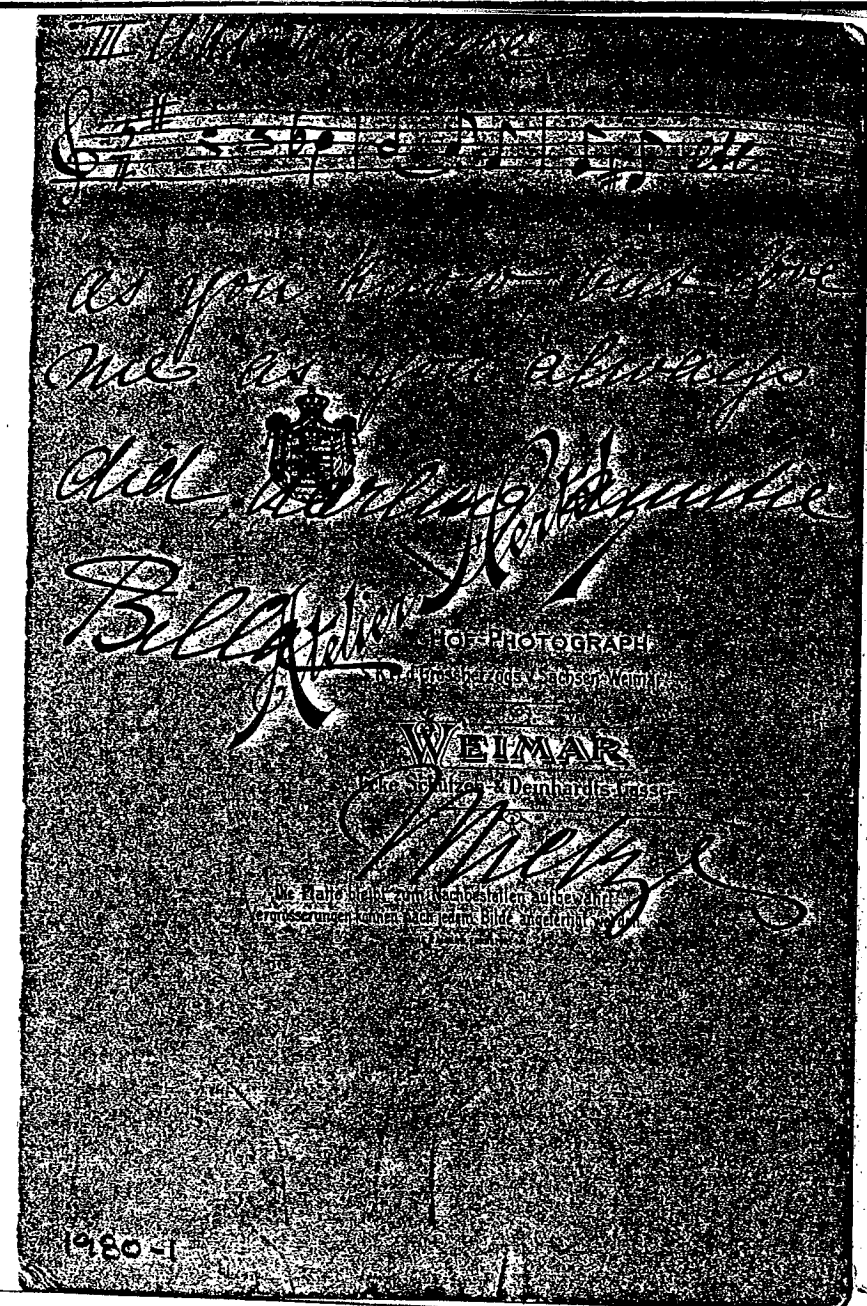 III
etc.
as you know but love
me as you always
did darling
Bella
Atelier Hertel
HOF-PHOTOGRAPH
Grossherzogs v. Sachsen-Weimar
WEIMAR
Ecke Schützen- & Deinhardts-Gasse
Mietze
Die Platte bleibt zum Nachbestellen aufbewahrt.
Vergrösserungen können nach jedem Bilde angefertigt werden.
1980-1